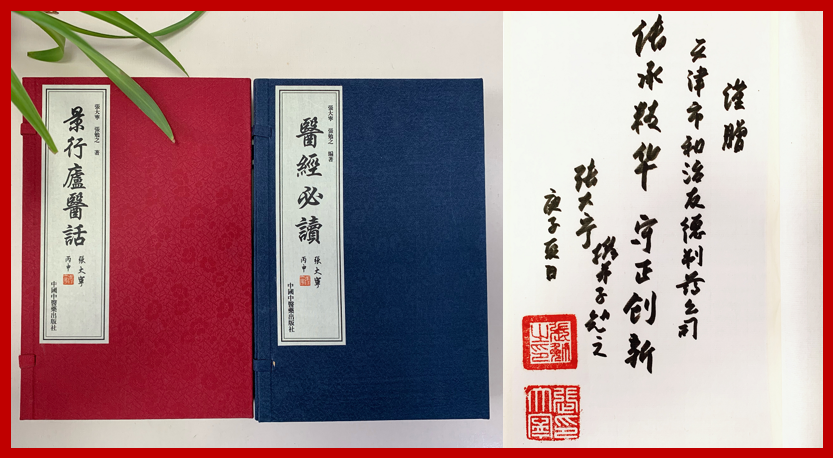 張大寧 張勉之 著
景行廬醫話
張大寧
丙申
中國中醫藥出版社
張大寧 張勉之 編著
醫經必讀
張大寧
丙申
中國中醫藥出版社
谨赠
天津市和治友德制药公司
传承精华 守正创新
张大宁
携弟子勉之
庚子夏日
張勉之印
張大寧印